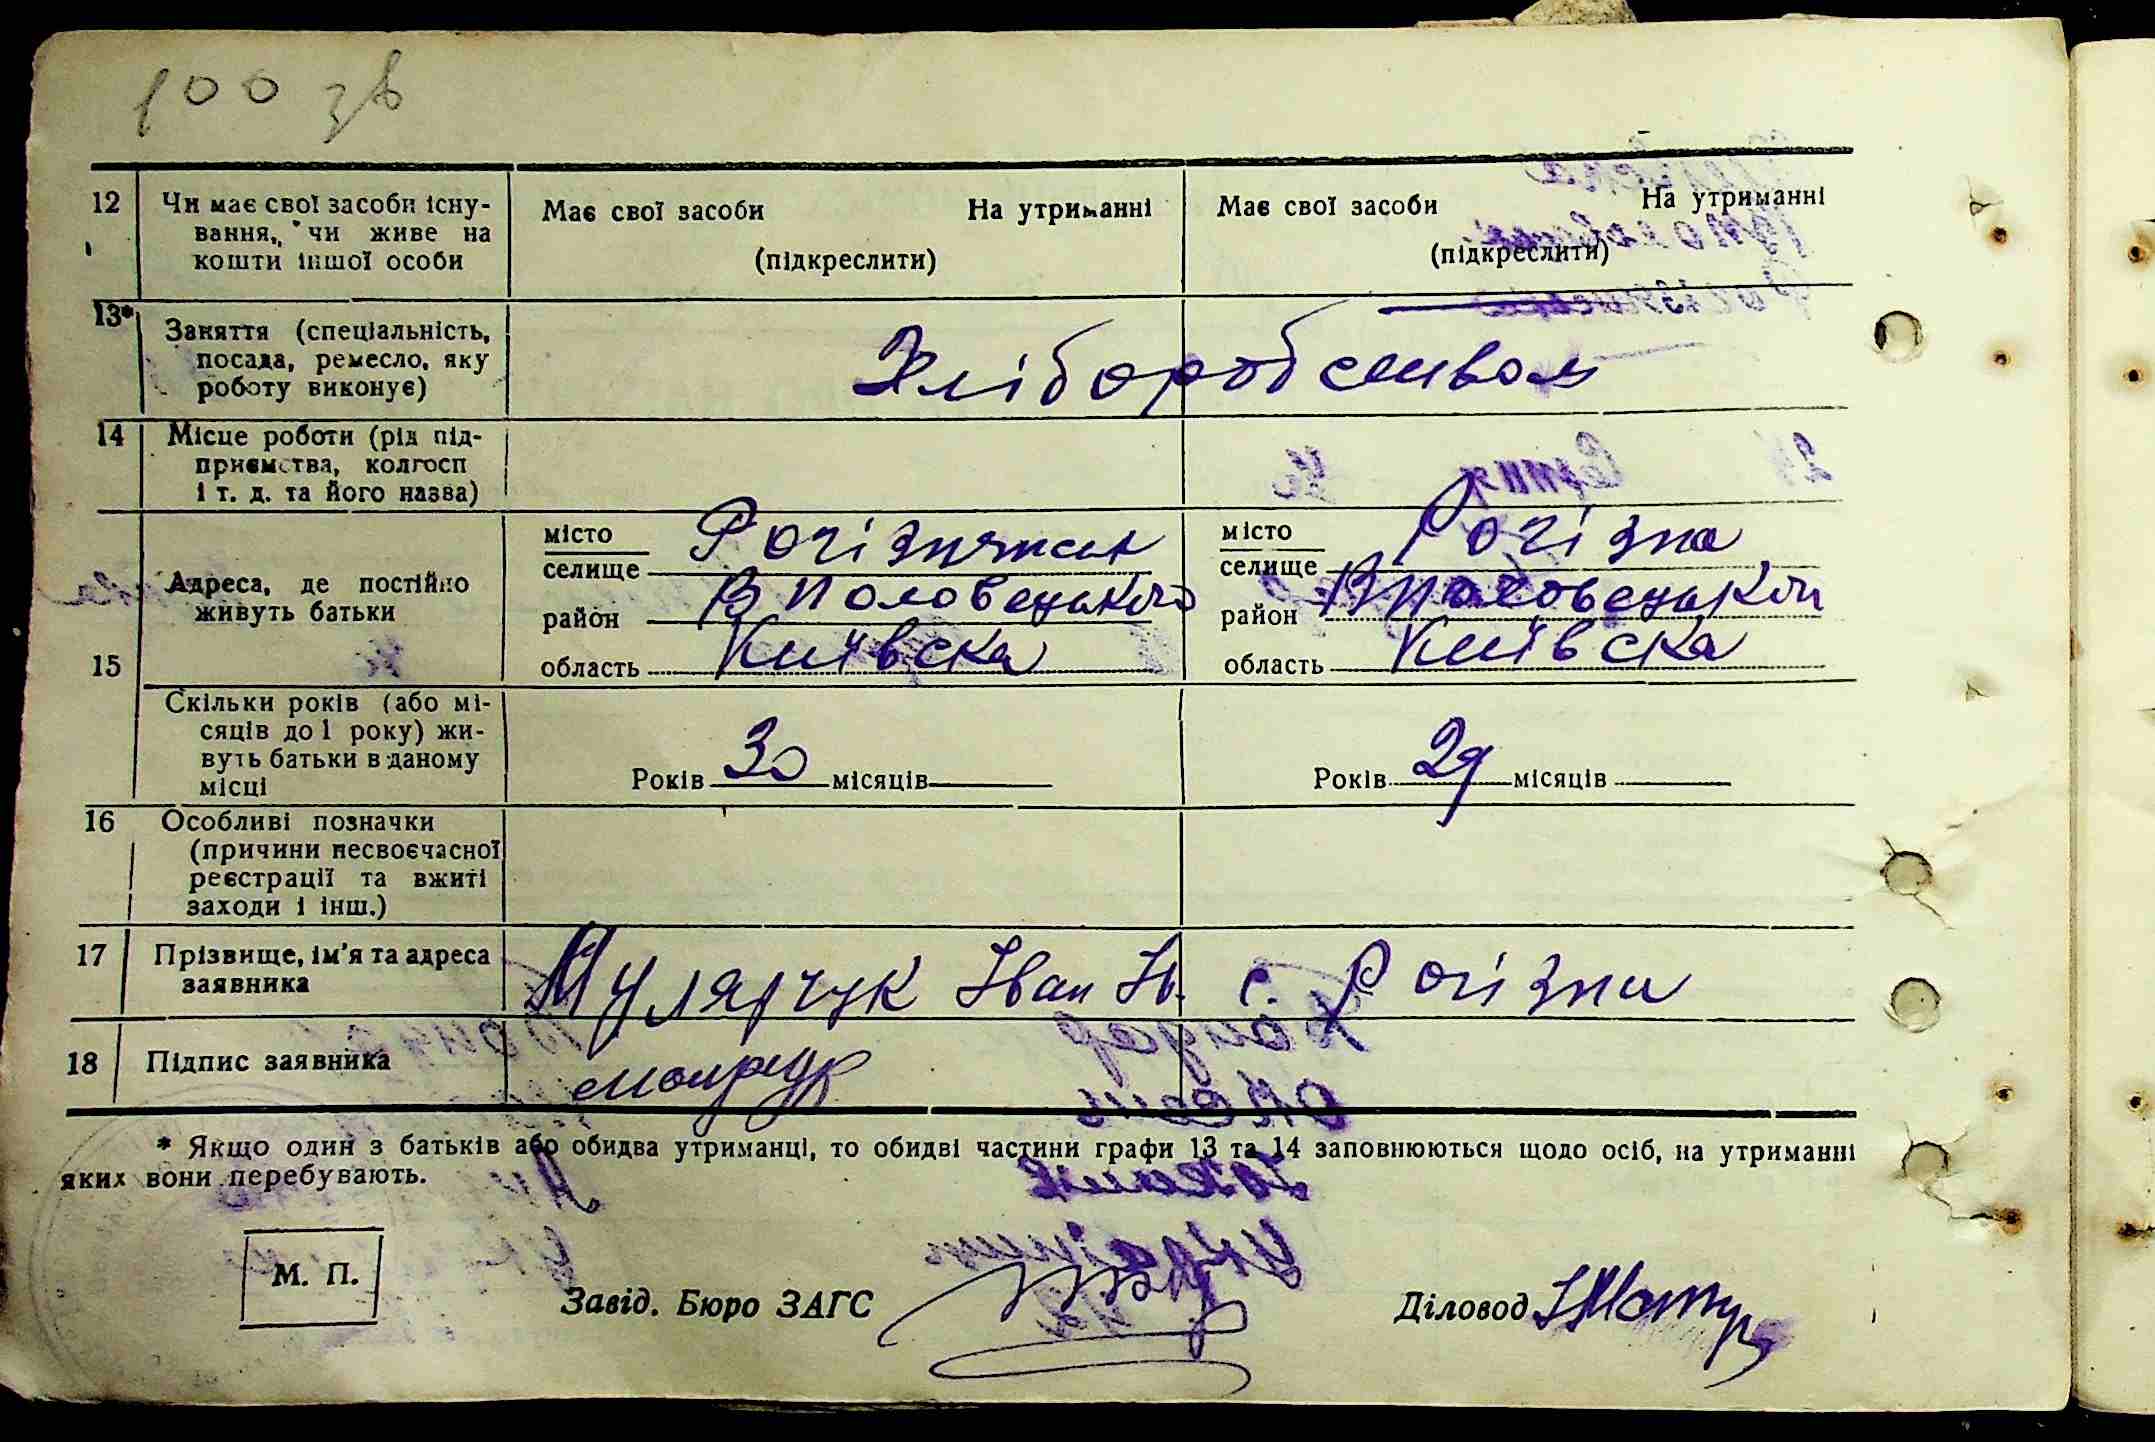 100 зв
12 Чи має свої засоби існу- Має свої засоби На утриманні Має свої засоби На утриманні
вання, чи живе на
кошти іншої особи (підкреслити) (підкреслити)
13* Заняття (спеціальність,
посада, ремесло, яку Хліборобством
роботу виконує)
14 Місце роботи (рід під-
приємства, колгосп
і т. д. та його назва)
місто Рогізнянськ місто Рогізна
селище селище
Адреса, де постійно
живуть батьки район В Половецького район В Половецький
15 область Київска область Київска
Скільки років (або мі-
сяців до 1 року) жи-
вуть батьки в даному
місці Років 30 місяців Років 29 місяців
16 Особливі позначки
(причини несвоєчасної
реєстрації та вжиті
заходи і інш.)
17 Прізвище, ім'я та адреса Мулярчук Іван Ів. с. Рогізни
заявника
18 Підпис заявника
* Якщо один з батьків або обидва утриманці, то обидві частини графи 13 та 14 заповнюються щодо осіб, на утриманні
яких вони перебувають.
М. П.
Завід. Бюро ЗАГС Діловод